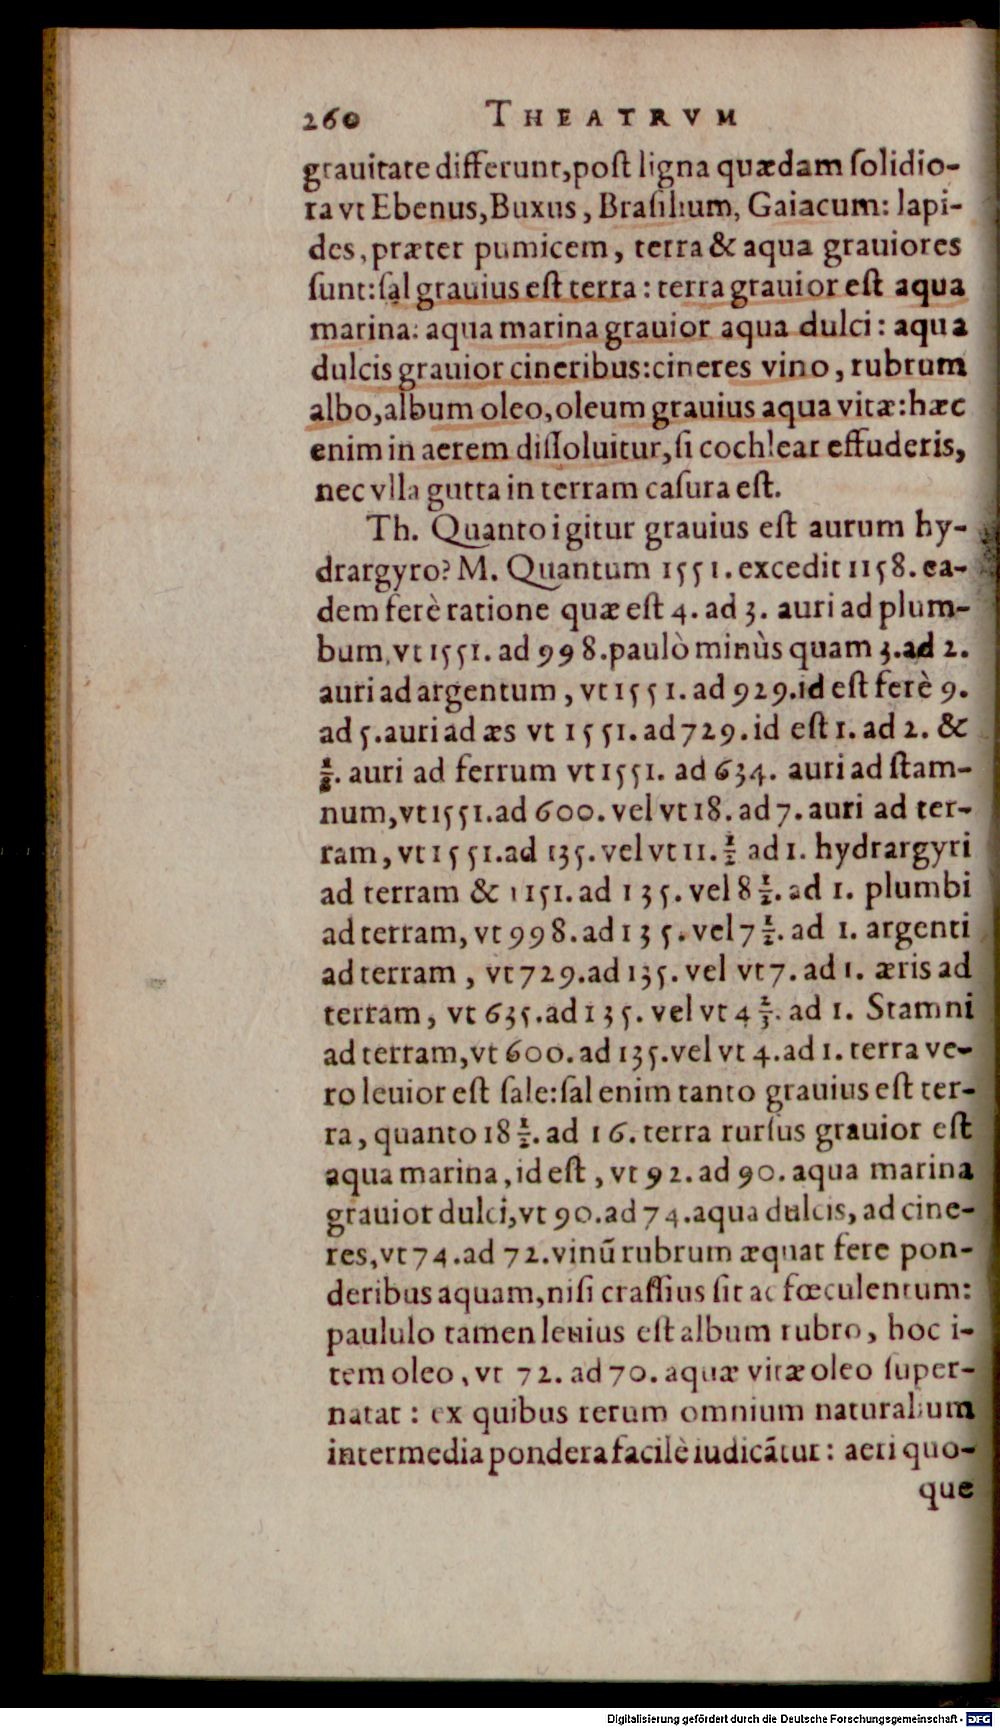 260 THEATRVM
grauitate differunt, post ligna quædam solidio-
ra vt Ebenus, Buxus, Brasilium, Gaiacum: lapi-
des, præter pumicem, terra & aqua grauiores
sunt: sal grauius est terra: terra grauior est aqua
marina: aqua marina grauior aqua dulci: aqua
dulcis grauior cineribus: cineres vino, rubrum
albo, album oleo, oleum grauius aqua vitæ: hæc
enim in aerem dissoluitur, si cochlear effuderis,
nec vlla gutta in terram casura est.
Th. Quanto igitur grauius est aurum hy-
drargyro? M. Quantum 1551. excedit 1158. ea-
dem ferè ratione quæ est 4. ad 3. auri ad plum-
bum, vt 1551. ad 998. paulò minùs quam 3. ad 2.
auri ad argentum, vt 1551. ad 929. id est ferè 9.
ad 5. auri ad æs vt 1551. ad 729. id est 1. ad 2. &
auri ad ferrum vt 1551. ad 634. auri ad stam-
num, vt 1551. ad 600. vel vt 18. ad 7. auri ad ter-
ram, vt 1551. ad 135. vel vt 11. ½ ad 1. hydrargyri
ad terram & 1151. ad 135. vel 8 ½. ad 1. plumbi
ad terram, vt 998. ad 135. vel 7 ½. ad 1. argenti
ad terram, vt 729. ad 135. vel vt 7. ad 1. æris ad
terram, vt 635. ad 135. vel vt 4 ⅔. ad 1. Stamni
ad terram, vt 600. ad 135. vel vt 4. ad 1. terra ve-
ro leuior est sale: sal enim tanto grauius est ter-
ra, quanto 18 ½. ad 16. terra rursus grauior est
aqua marina, id est, vt 92. ad 90. aqua marina
grauior dulci, vt 90. ad 74. aqua dulcis, ad cine-
res, vt 74. ad 72. vinũ rubrum æquat fere pon-
deribus aquam, nisi crassius sit ac fœculentum:
paululo tamen leuius est album rubro, hoc i-
tem oleo, vt 72. ad 70. aquæ vitæ oleo super-
natat: ex quibus rerum omnium naturalium
intermedia pondera facilè iudicãtur: aeri quo-
que
Digitalisierung gefördert durch die Deutsche Forschungsgemeinschaft - DFG